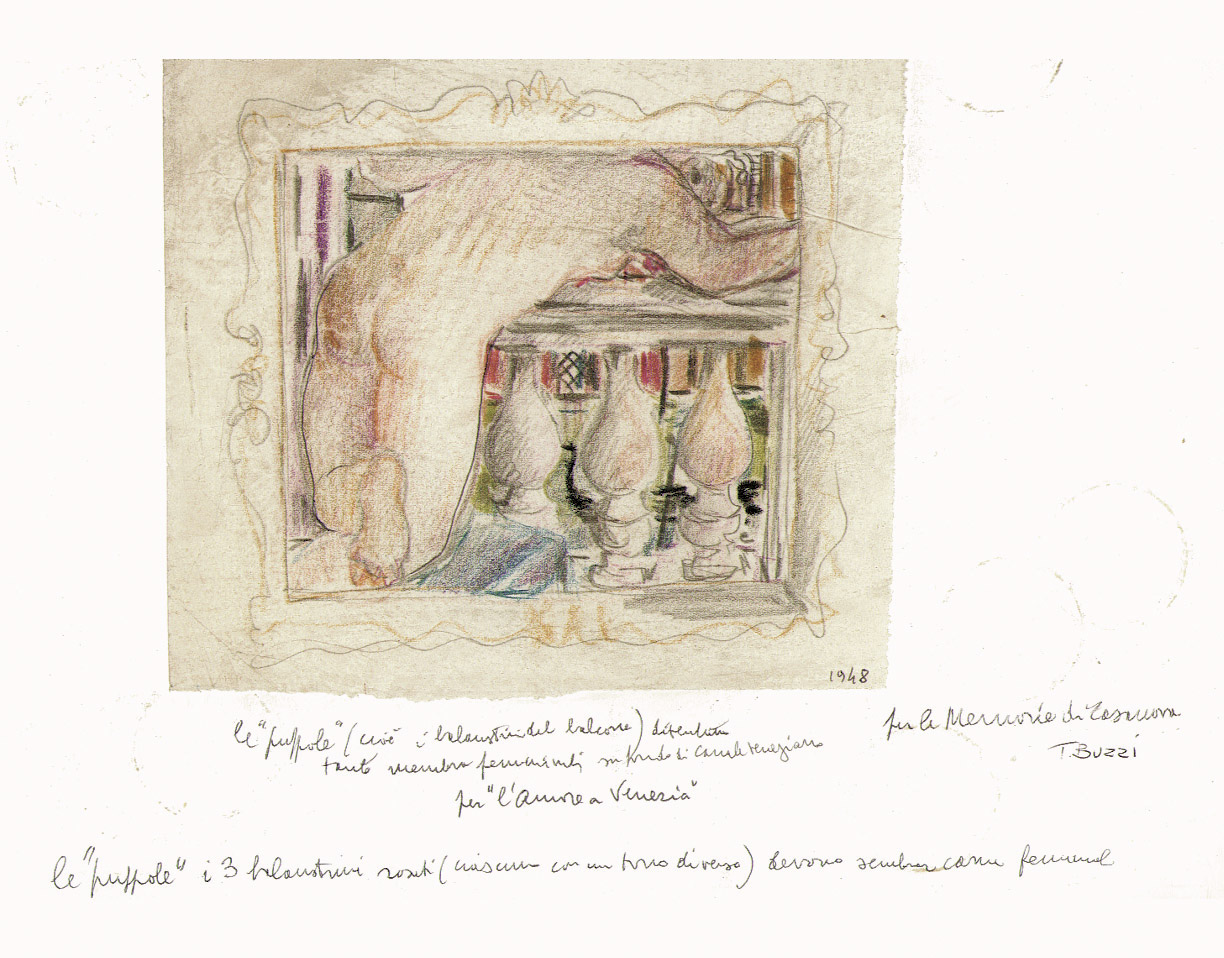 1948
le "puppole" (cioè i balaustrini del balcone) diventate
tante membra femminili su fondo di canale veneziano
per "l'Amore a Venezia"
per le Memorie di Casanova
T. BUZZI
le "puppole" i 3 balaustrini rosati (ciascuno con un tono diverso) devono sembrare carne